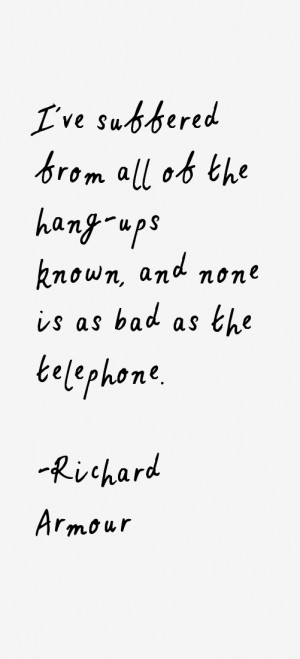 I've suffered
from all of the
hang-ups
known, and none
is as bad as the
telephone.
-Richard
Armour